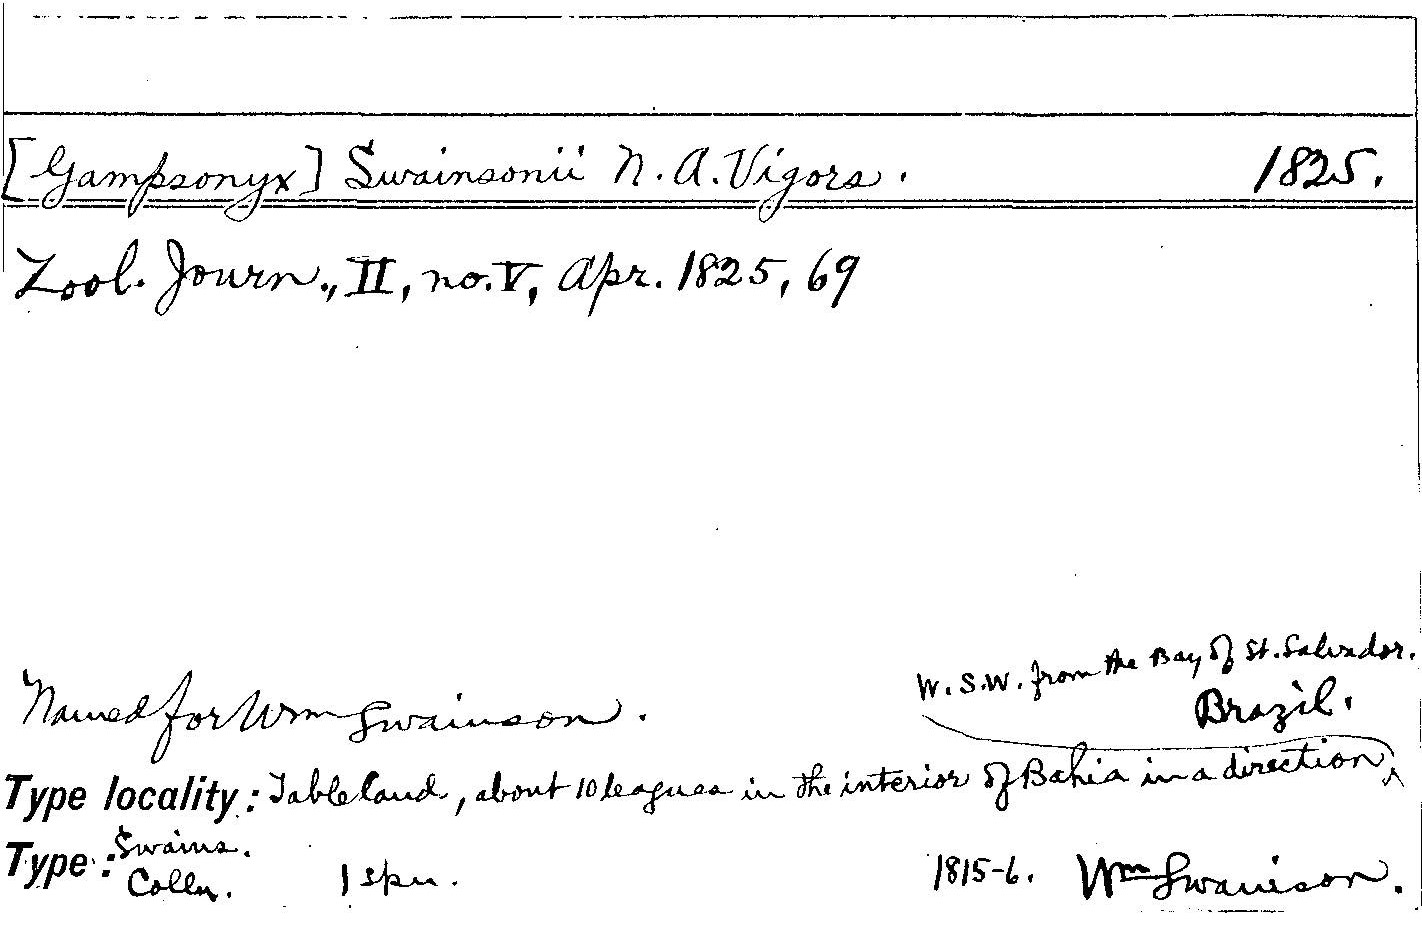 [Gampsonyx] Swainsonii N. A. Vigors. 1825.
Zool. Journ., II, no. V, Apr. 1825, 69
W.S.W. from the Bay of St. Salvador.
Named for Wm Swainson. Brazil.
Type locality: Tableland, about 10 leagues in the interior of Bahia in a direction ^
Type: Swains. Colln. 1 spn. 1815-6. Wm Swainson.